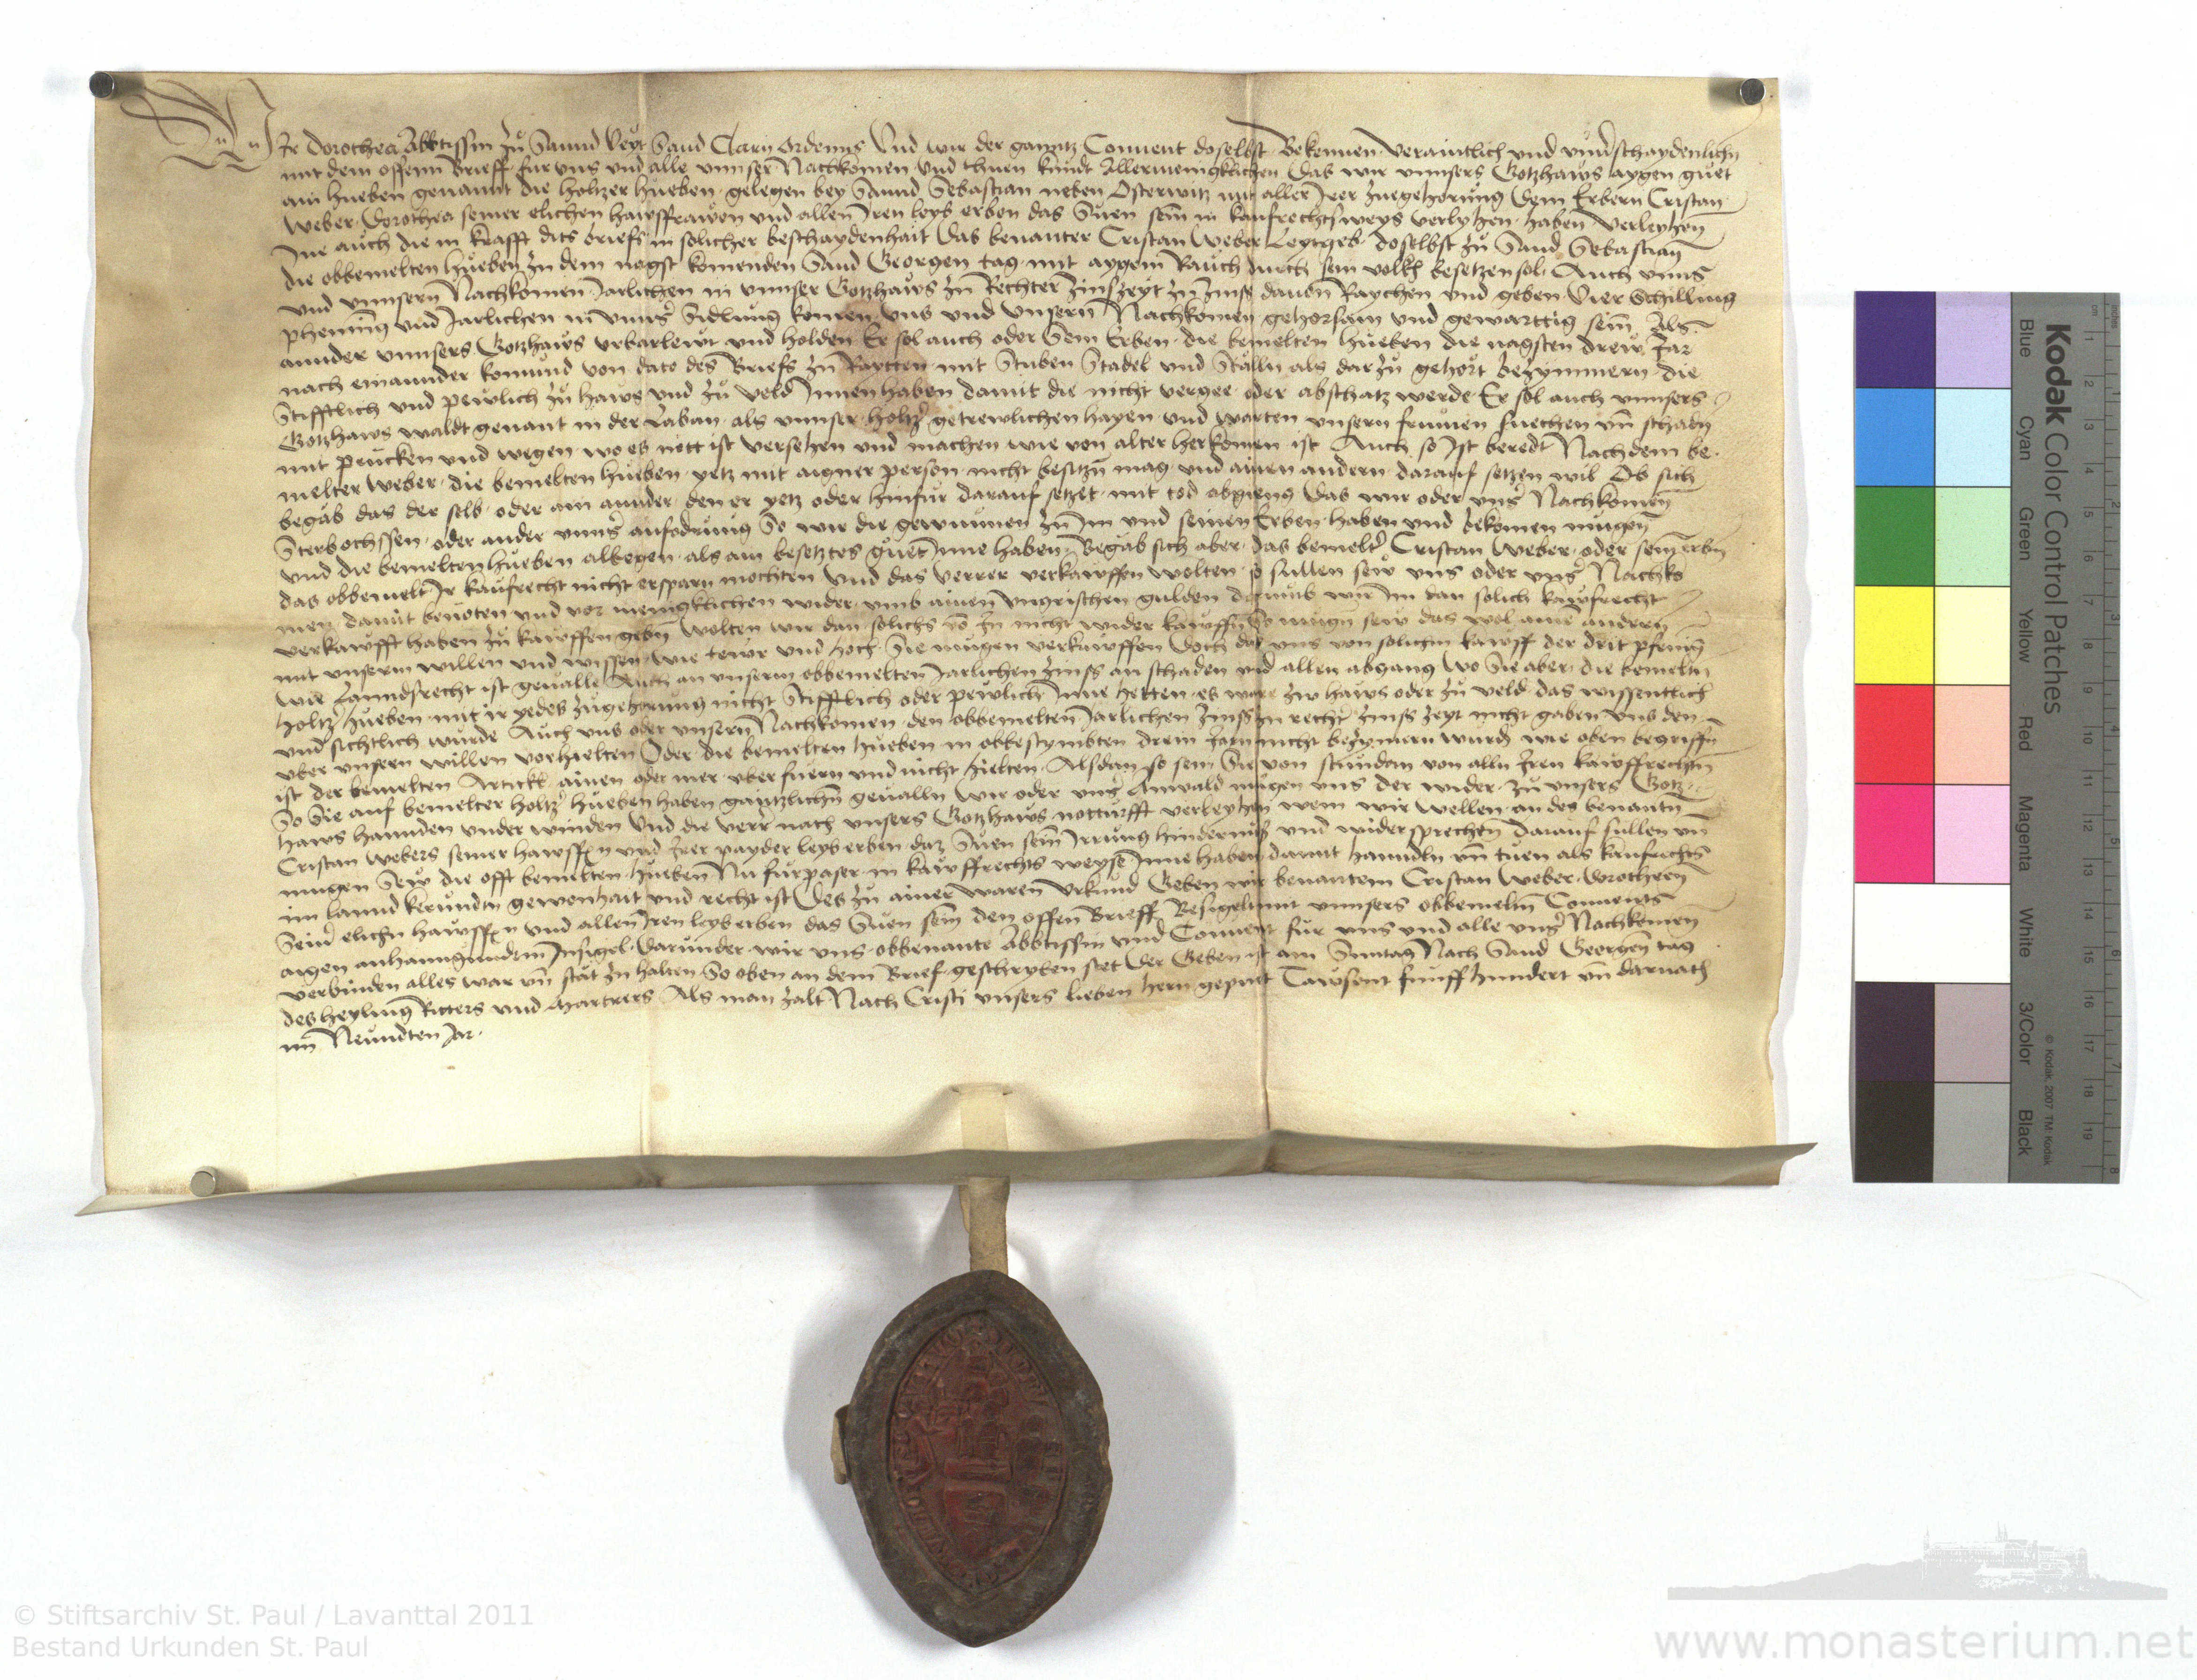 Wir Dorothea Abbtissin zů Sannd Veyt Sand Clarn ordenns Vnd wir der ganntz Conuent doselbst Bekennen verainttlich vnd vnuerschaydenlichn
mit dem offenn Brieff fur vns vnd alle vnnser Nachkomen Vnd thuen kundt Allermenigklichen Das wir vnnsers Gotzhaws aygen guet
ain hueben genannt die holtzer hueben gelegen bey Sannd Sebastian neben Osterwitz mit aller Irer zuegehorung Dem Erbern Cristan
Weber Dorothea seiner elichen hawsfrawen vnd allen Iren leyb erben das Suen sein in kaufrechtsweys verlyhen haben verleyhen
Ine auch die in krafft dits briefs in solicher beschaydenhait Das benanter Cristan Weber Leytgeb doselbst zů Sand Sebastian
die obbemelten hueben zu dem nagst komenden Sand Georgen tag mit aygem Rauch durch sein volkh besetzen sol Auch vnns
vnd vnnsern Nachkomen Jarlichen in vnnser Gotzhaws zu Rechter zinszeyt zu zinss dauon Raychen vnd geben Vier Schilling
phening vnd Jarlichen in vnnser Sidlung komen vns vnd vnsern Nachkomen gehorsam vnd gewarttig sein Als
annder vnnsers Gotzhaws vrbarlewt vnd holden Er sol auch oder Sein Erben die bemelten hueben die nagsten drew Jar
nach einannder komund von dato des Briefs zu Raytten mit Stuben Stadel vnd Stalln als darzů gehört bezymmern die
Stifftlich vnd pewlich zů haws vnd zů veld Innen haben damit die nicht vergee oder abschatz werde Er sol auch vnnsers
Gotzhaws waldt genant in der Laban als vnnser holtzer getrewlichen hayen vnd warten vnsern frumen fuechen vnd schadn
mit prucken vnd wegen wo es nott ist versehen vnd machen wie von alter herkomen ist Auch so Ist beredt Nachdem be
melter Weber die bemelten hueben yetz mit aigner person nicht besitzn mag vnd ainen andern darauf setzen wil Ob sich
begäb das der selb oder ain annder den er yetz oder hinfur darauf setzet mit tod abgieng Das wir oder vnser Nachkomen
Sterbochssen oder ander vnnser anfodrung So wir die gewunnen zu Im vnd seinen Erben haben vnd bekomen mugen
vnd die bemelten hueben allwegen als ain besetztes guet Inne haben Begäb sich aber das bemelter Cristan Weber oder sein erbn
das obbemelt Ir kaufrecht nicht ersparn mochten vnd das verrer verkawffen wolten so sullen sew vns oder vnser Nachko
men damit benoten vnd vor menigklichen wider vmb ainen vngrischen gulden darumb wir Im dan solich kawfrecht
verkawfft haben zů kawffen gebn Wolten wir dan solichs von In nicht wider kawffen So mugn sew das wol aine andern
mit vnserm willen vnd wissen wie tewr vnd hoch Sie mugen verkawffen Doch das vns von solichm kawff der drit pfening
wie Lanndsrecht ist geualle Auch an vnserm obbemelten Jarlichen zinss an schaden vnd allen abgang Wo Sie aber die bemeltn
holtzer hueben mit ir yedes zůgehorung nicht Stifftlich oder pewlich Inne hetten es ware zw haws oder zů veld das wissentlich
vnd sichtlich wurde Auch vns oder vnsern Nachkomen den obbemelten Jarlichen zinss zu rechter zinss zeyt nicht gaben vns den
vber vnsern willen vorhielten Oder die bemelten hueben in obbestymbten drein Jarn nicht bezymern wurdn wie oben begriffn
ist der bemelten Artickl ainen oder mer vber fuern vnd nicht hielten Alsdan so sein Sie von stundan von alln Iren kawffrechtn
So Sie auf bemelter holtzer hueben haben gantzlichen geualln Wir oder vnser Anwald mugen vns der wider zu vnsers Gotz
haws hannden vnder winden Vnd die verrer nach vnsers Gotzhaws notturfft verleyhen wem wir wellen an des benantn
Cristan Webers seiner hawsfrn vnd Irer payder leyb erben daz Suen sein Irrung hindernuss vnd widersprechen Darauf sullen vnd
mugen Sew die offt bemelten hueben Nu furpaser in kawffrechts weyse Inne haben damit hanndln vnd tuen als kaufrechts
im lannd kerndtn gewonhait vnd recht ist Des zů ainer waren vrkund Geben wir benantem Cristan Weber Dorothen
Seiner elichn hawsfrn vnd allen Iren leyb erben das Suen sein den offen Brieff Besigelt mit vnnsers obbemeltn Conuents
aigen anhanngundem Insigel Darunder wir vns obbenante Abbtissin vnd Conuent fur vns vnd alle vnser Nachkomen
verbinden alles war vnd stät zu halten So oben an dem Brief geschryben stet Der Geben ist am Suntag Nach Sand Georgen tag
des heyling Ritters vnd Martrers Als man zalt Nach Cristi vnsers lieben hern gepurt Tawsent funffhundert vnd darnach
im Neundten Jar
Kodak Color Control Patches
Blue Cyan Green Yellow Red Magenta White 3/Color Black
© Kodak, 2007 TM: Kodak
© Stiftsarchiv St. Paul / Lavanttal 2011
Bestand Urkunden St. Paul
www.monasterium.net